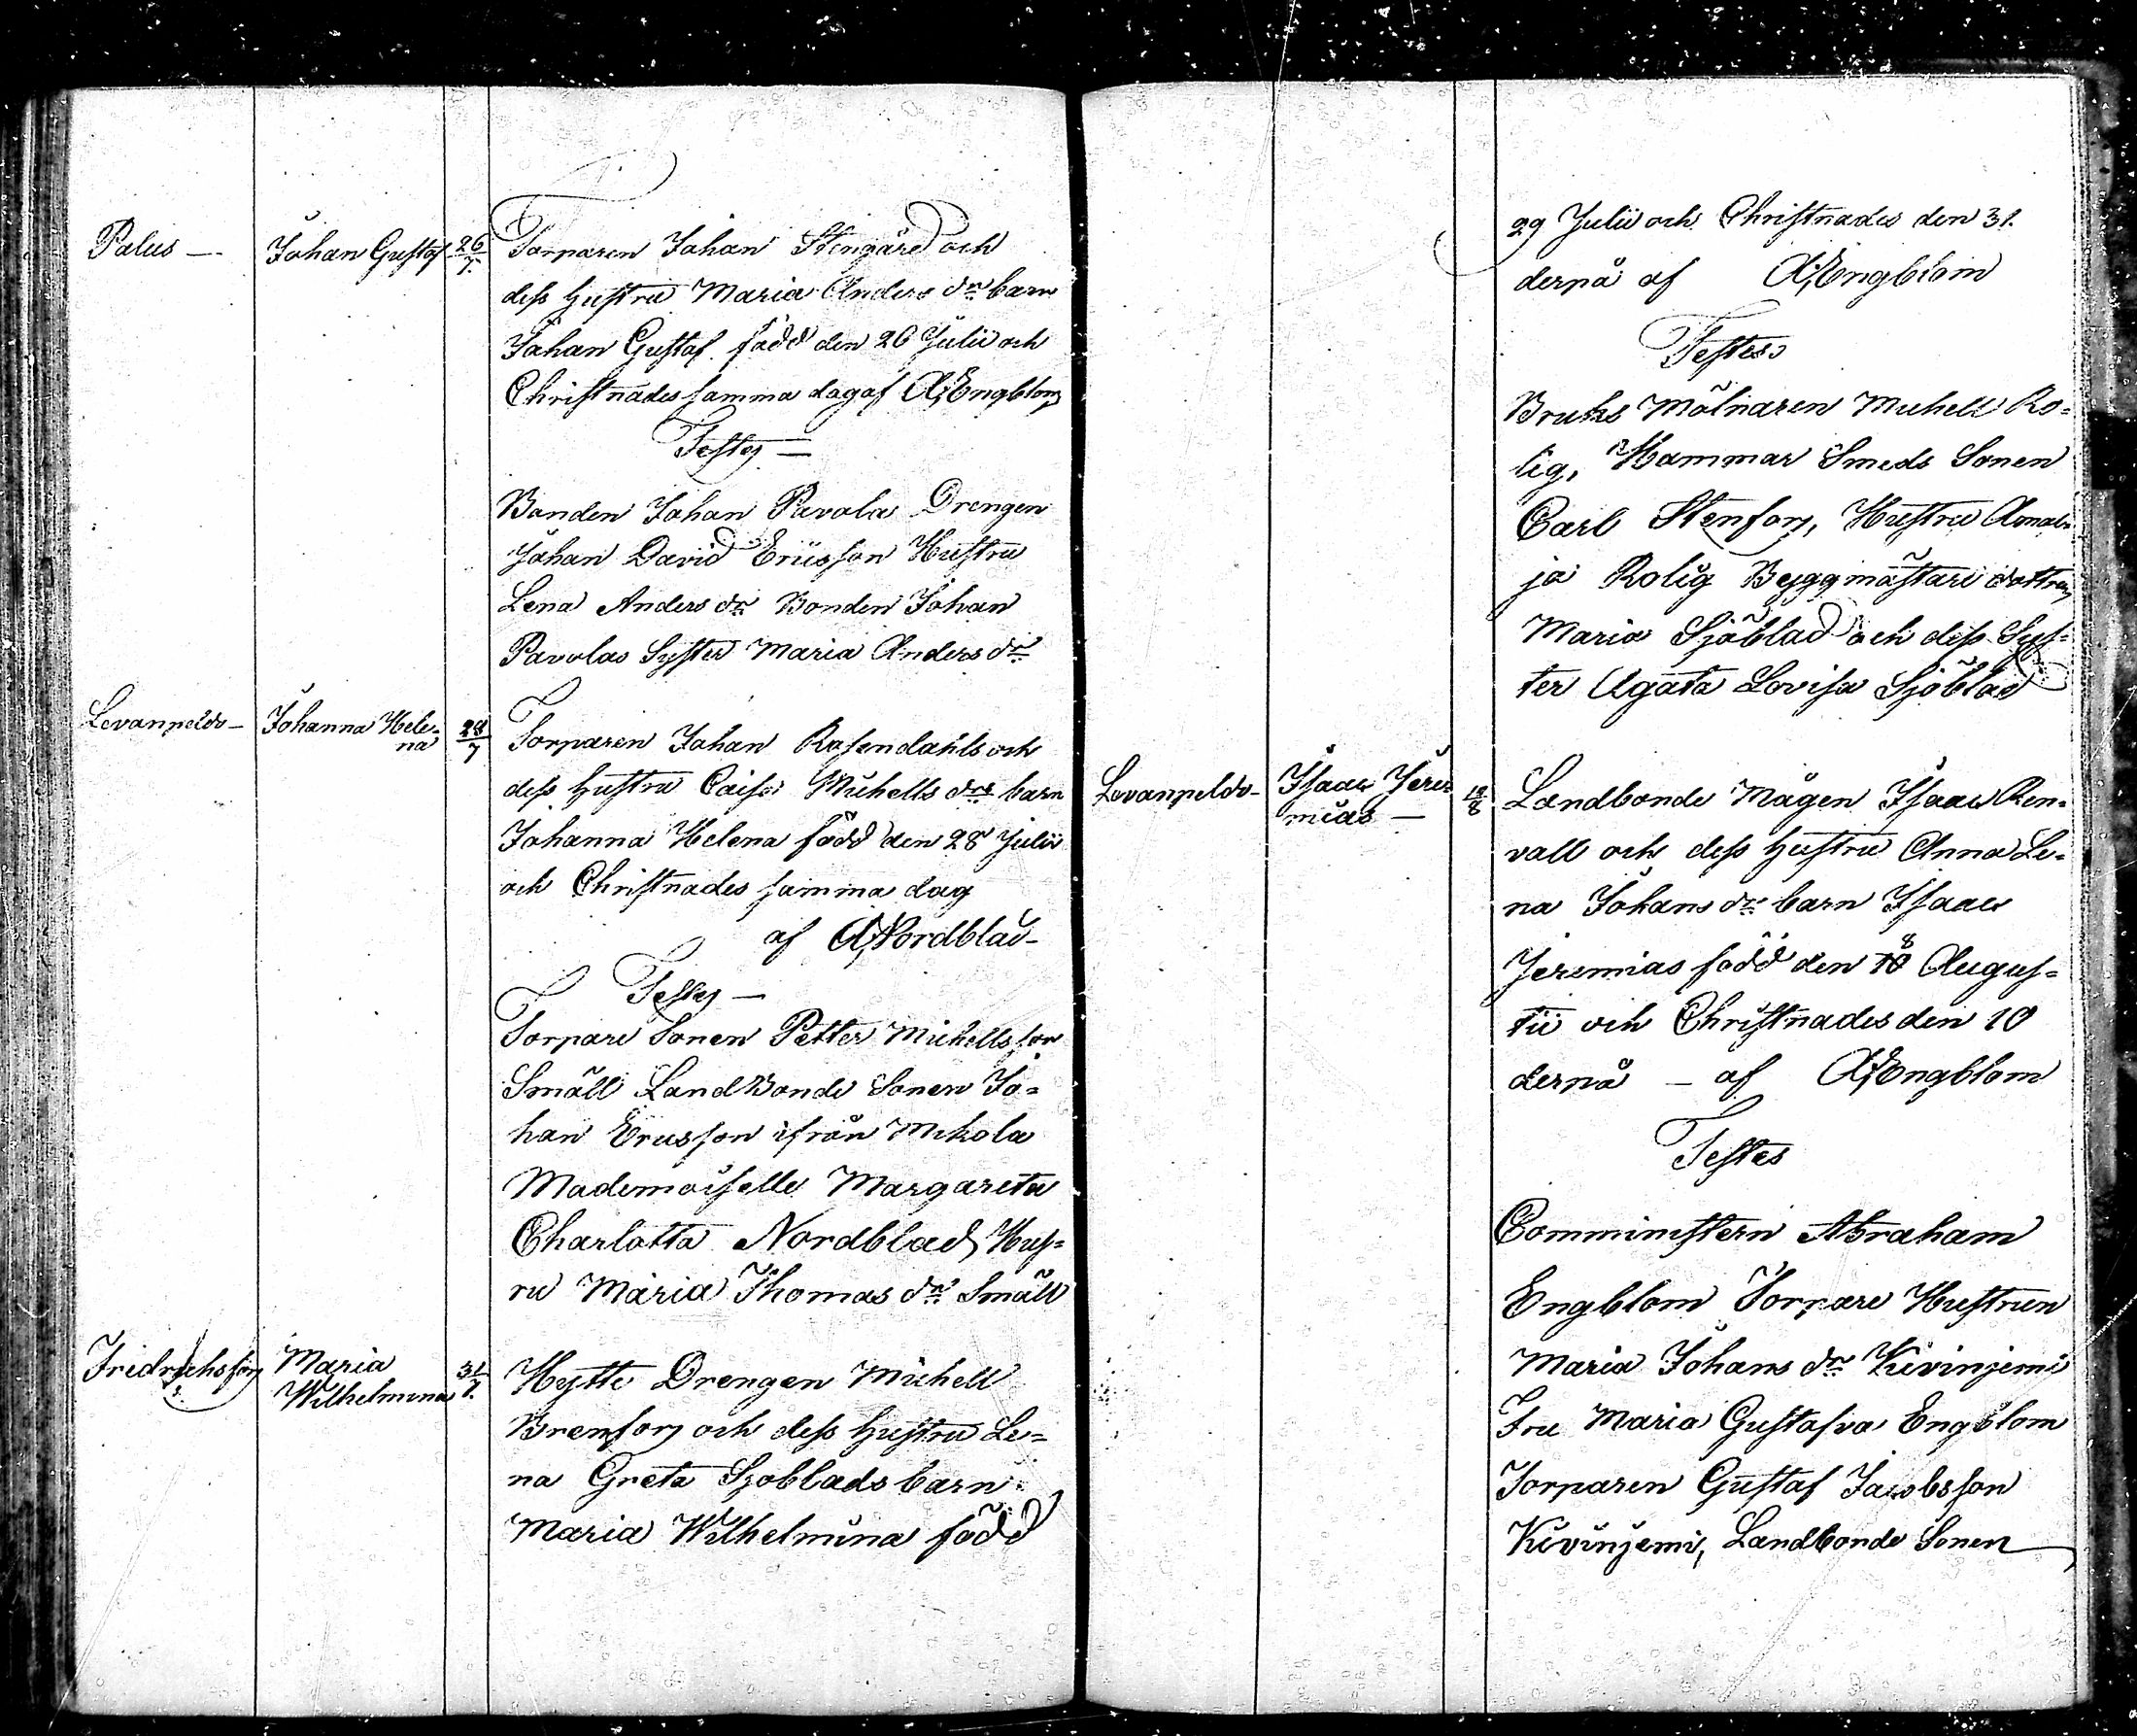 Palus — Johan Gustaf 26/7. Torparen Johan Stengård och
dess hustru Maria Anders dr barn
Johan Gustaf född den 26 Julii och
Christnades samma dag af A: Engblom
Testes —
Bonden Johan Pavola Drengen
Johan David Ericsson Hustru
Lena Anders dr Bonden Johan
Pavolas Syster Maria Anders dr
Levanpeldo — Johanna Hele=
na 28/7 Torparen Johan Rosendahls och
dess hustru Caisa Michells drs barn
Johanna Helena född den 28 Julii
och Christnades samma dag
af A: Nordblad —
Testes —
Torpare Sonen Petter Michellsson
Småll Land Bonde Sonen Jo=
han Ericsson ifrån Mikola
Mademoiselle Margareta
Charlotta Nordblad, Hus=
ru Maria Thomas dr Småll
Fridrichsfors Maria
Wilhelmina 31/7. Hytte Drengen Michell
Brenfors och dess hustru Le=
na Greta Sjöblads barn
Maria Wilhelmina född
29 Julii och Christnades den 31.
derpå af A: Engblom
Testes
Bruks Mölnaren Michell Ro=
lig, Hammar Smeds Sonen
Carl Stenfors, Hustru Amal=
ja Rolig Byggmästare dottren
Maria Sjöblad och dess Sys=
ter Agata Lovisa Sjöblad
Levanpeldo — Isaac Jere
mias — 10/8 Landbonde Mågen Isaac Ren=
vall och dess hustru Anna Le=
na Johans dr barn Isaac
Jeremias född den 8 Augus=
tii och Christnades den 10
derpå — af A: Engblom
Testes
Comministern Abraham
Engblom Torpare Hustrun
Maria Johans dr Kivinjemi
Fru Maria Gustafva Engblom
Torparen Gustaf Jacobsson
Kivinjemi, Landbonde Sonen